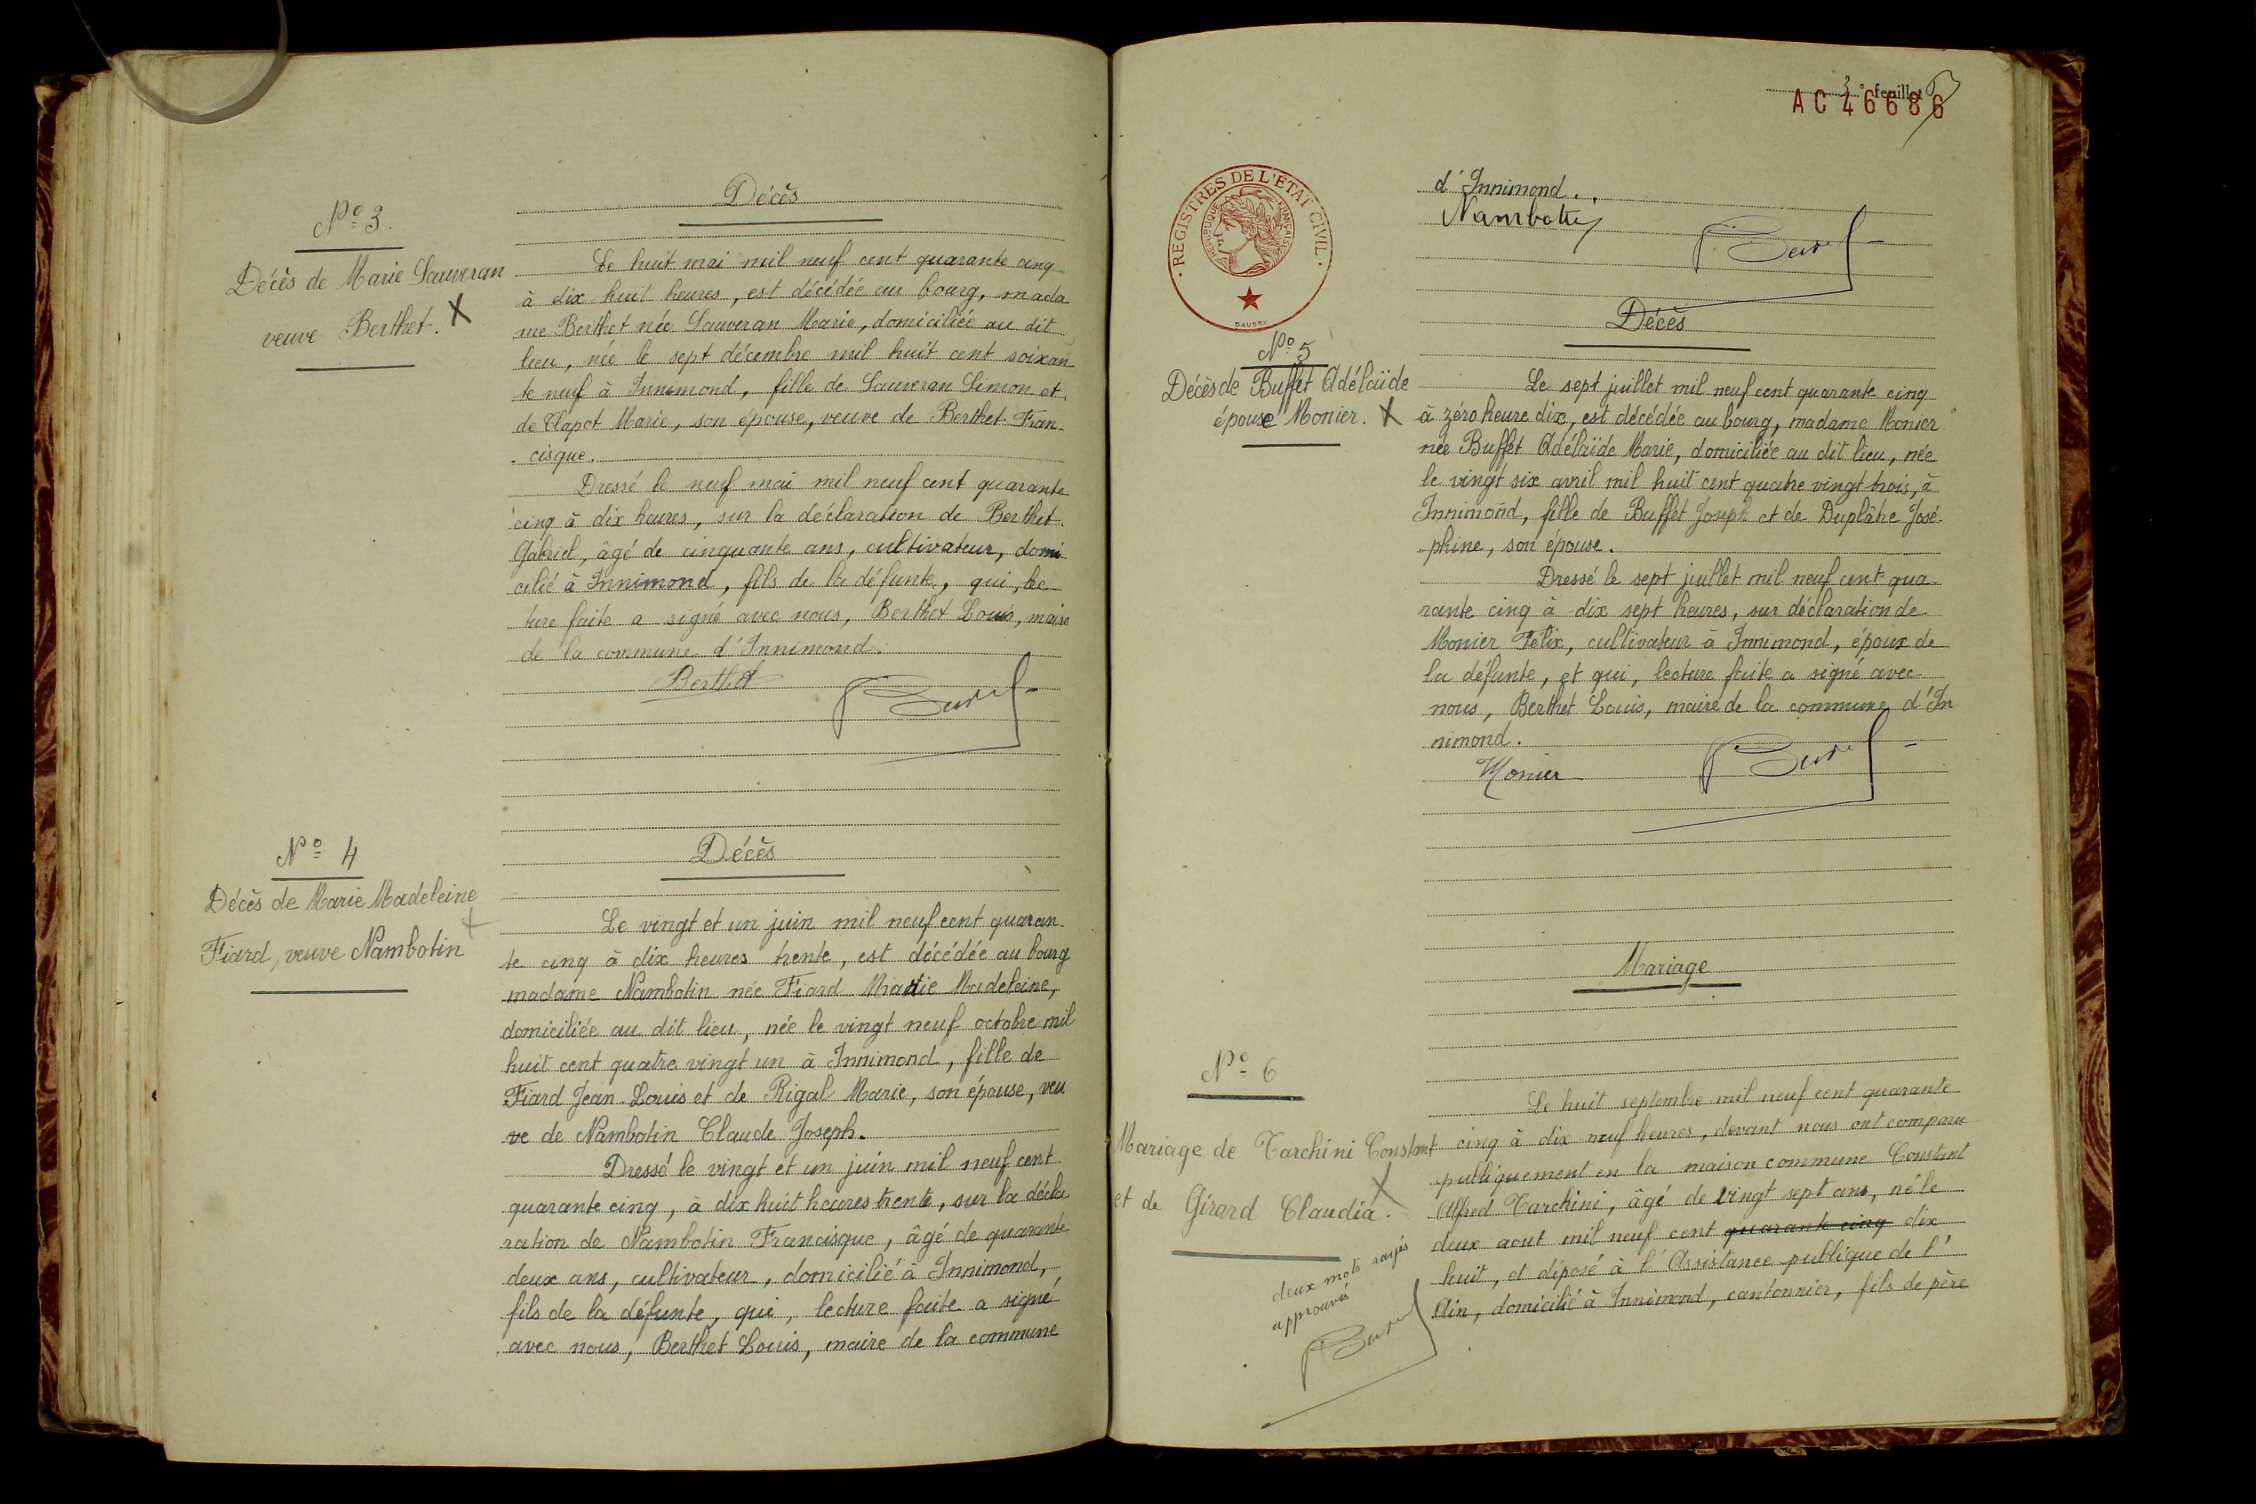 Décès
Nº 3.
Décès de Marie Sauveran
veuve Berthet. X
Le huit mai mil neuf cent quarante cinq
à dix huit heures, est décédée au bourg, mada
me Berthet née Sauveran Marie, domiciliée au dit
lieu, née le sept décembre mil huit cent soixan
te neuf à Innimond, fille de Sauveran Simon et
de Clapot Marie, son épouse, veuve de Berthet Fran-
cisque.
Dressé le neuf mai mil neuf cent quarante
cinq à dix heures, sur la déclaration de Berthet
Gabriel, âgé de cinquante ans, cultivateur, domi
cilié à Innimond, fils de la défunte, qui, lec-
ture faite a signé avec nous, Berthet Louis, maire
de la commune d'Innimond.
Berthet
Décès
Nº 4
Décès de Marie Madeleine
Fiard, veuve Nambotin
Le vingt et un juin mil neuf cent quaran
te cinq à dix heures trente, est décédée au bourg
madame Nambotin née Fiard Marie Madeleine,
domiciliée au dit lieu, née le vingt neuf octobre mil
huit cent quatre vingt un à Innimond, fille de
Fiard Jean-Louis et de Rigal Marie, son épouse, veu
ve de Nambotin Claude Joseph.
Dressé le vingt et un juin mil neuf cent
quarante cinq, à dix huit heures trente, sur la décla
ration de Nambotin Francisque, âgé de quarante
deux ans, cultivateur, domicilié à Innimond,
fils de la défunte, qui, lecture faite a signé
avec nous, Berthet Louis, maire de la commune
3e feuillet
AC 46686
REGISTRES DE L'ETAT CIVIL
REPUBLIQUE FRANÇAISE
d'Innimond.
Décès
Nº 5
Décès de Buffet Adélaïde
épouse Monier. X
Le sept juillet mil neuf cent quarante cinq
à zéro heure dix, est décédée au bourg, madame Monier
née Buffet Adélaïde Marie, domiciliée au dit lieu, née
le vingt six avril mil huit cent quatre vingt trois, à
Innimond, fille de Buffet Joseph et de Duplâtre José-
phine, son épouse.
Dressé le sept juillet mil neuf cent qua
rante cinq à dix sept heures, sur déclaration de
Monier Félix, cultivateur à Innimond, époux de
la défunte, et qui, lecture faite a signé avec
nous, Berthet Louis, maire de la commune d'In
nimond.
Monier
Mariage
Nº 6
Mariage de Tarchini Constant
et de Girard Claudia. X
Le huit septembre mil neuf cent quarante
cinq à dix neuf heures, devant nous ont comparu
publiquement en la maison commune Constant
Alfred Tarchini, âgé de vingt sept ans, né le
deux aout mil neuf cent quarante cinq dix
huit, et déposé à l'Assistance publique de l'
Ain, domicilié à Innimond, cantonnier, fils de père
deux mots rayés
approuvés